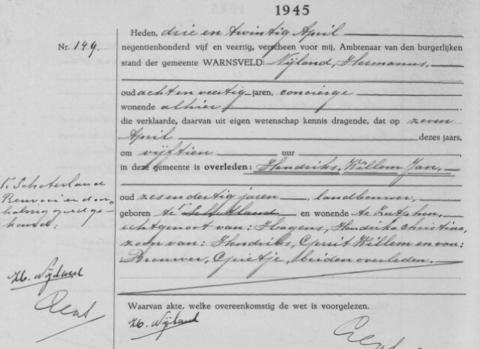 1945
Nr. 149.
Heden, drie en twintig April
negentienhonderd vijf en veertig, verscheen voor mij, Ambtenaar van den burgerlijken
stand der gemeente WARNSVELD: Nijland, Hermanus,
oud acht en veertig jaren, concierge
wonende alhier,
die verklaarde, daarvan uit eigen wetenschap kennis dragende, dat op zeven
April dezes jaars,
om vijftien uur
in deze gemeente is overleden: Hendriks, Willem Jan,
oud zes en dertig jaren, landbouwer,
geboren te en wonende te Zutphen,
echtgenoot van: Hogens, Hendrika Christina,
zoon van: Hendriks, Gerrit Willem en van:
Brouwer, Grietje, beiden overleden.
Waarvan akte, welke overeenkomstig de wet is voorgelezen.
H. Nijland
T. Schoterland
H. Nijland